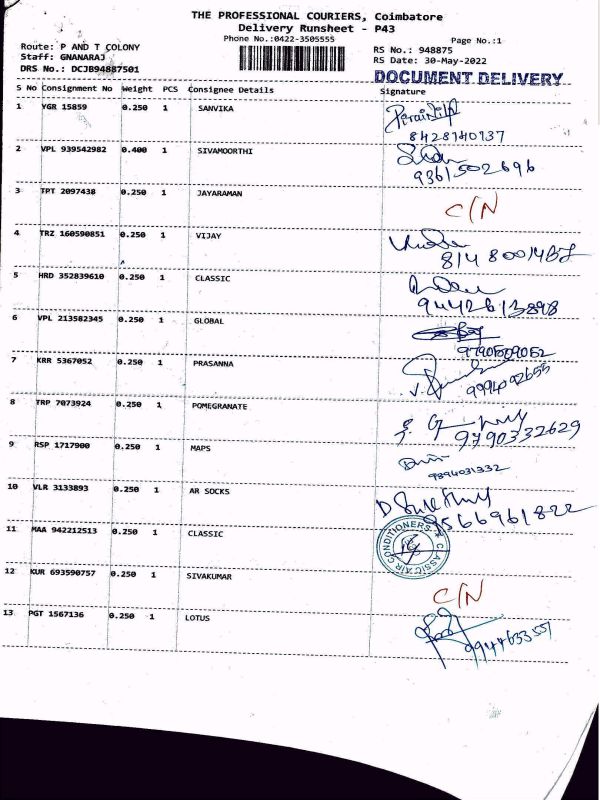 THE PROFESSIONAL COURIERS, Coimbatore
Delivery Runsheet - P43
Phone No.:0422-3505555
Page No.:1
Route: P AND T COLONY
RS No.: 948875
Staff: GNANARAJ
RS Date: 30-May-2022
DRS No.: DCJB94887501
DOCUMENT DELIVERY
S No Consignment No Weight PCS Consignee Details Signature
1 YGR 15859 0.250 1 SANVIKA
8428140137
2 VPL 939542982 0.400 1 SIVAMOORTHI
9361502696
3 TPT 2097438 0.250 1 JAYARAMAN C/N
4 TRZ 160590851 0.250 1 VIJAY
5 HRD 352839610 0.250 1 CLASSIC
9442613898
6 VPL 213582345 0.250 1 GLOBAL
9790509052
7 KRR 5367052 0.250 1 PRASANNA
9994092655
8 TRP 7073924 0.250 1 POMEGRANATE
9790332629
9 RSP 1717900 0.250 1 MAPS
9894031332
10 VLR 3133893 0.250 1 AR SOCKS
9566961822
11 MAA 942212513 0.250 1 CLASSIC
CLASSIC AIR CONDITIONERS
12 KUR 693590757 0.250 1 SIVAKUMAR C/N
13 PGT 1567136 0.250 1 LOTUS